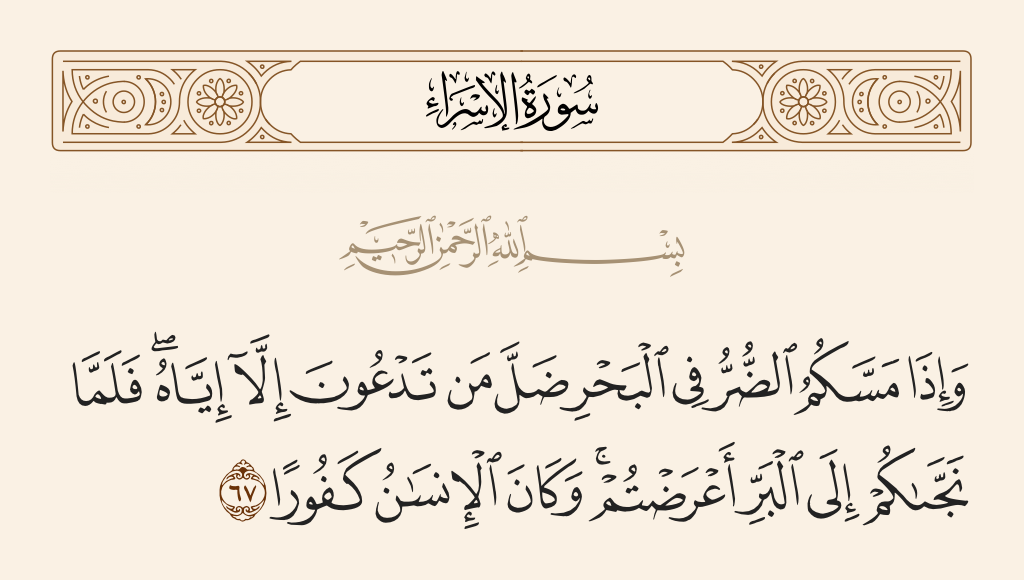 سُورَةُ الإِسْرَاءِ
بِسْمِ ٱللَّهِ ٱلرَّحْمَٰنِ ٱلرَّحِيمِ
وَإِذَا مَسَّكُمُ ٱلضُّرُّ فِى ٱلْبَحْرِ ضَلَّ مَن تَدْعُونَ إِلَّآ إِيَّاهُ ۖ فَلَمَّا
نَجَّىٰكُمْ إِلَى ٱلْبَرِّ أَعْرَضْتُمْ ۚ وَكَانَ ٱلْإِنسَـٰنُ كَفُورًا ٦٧